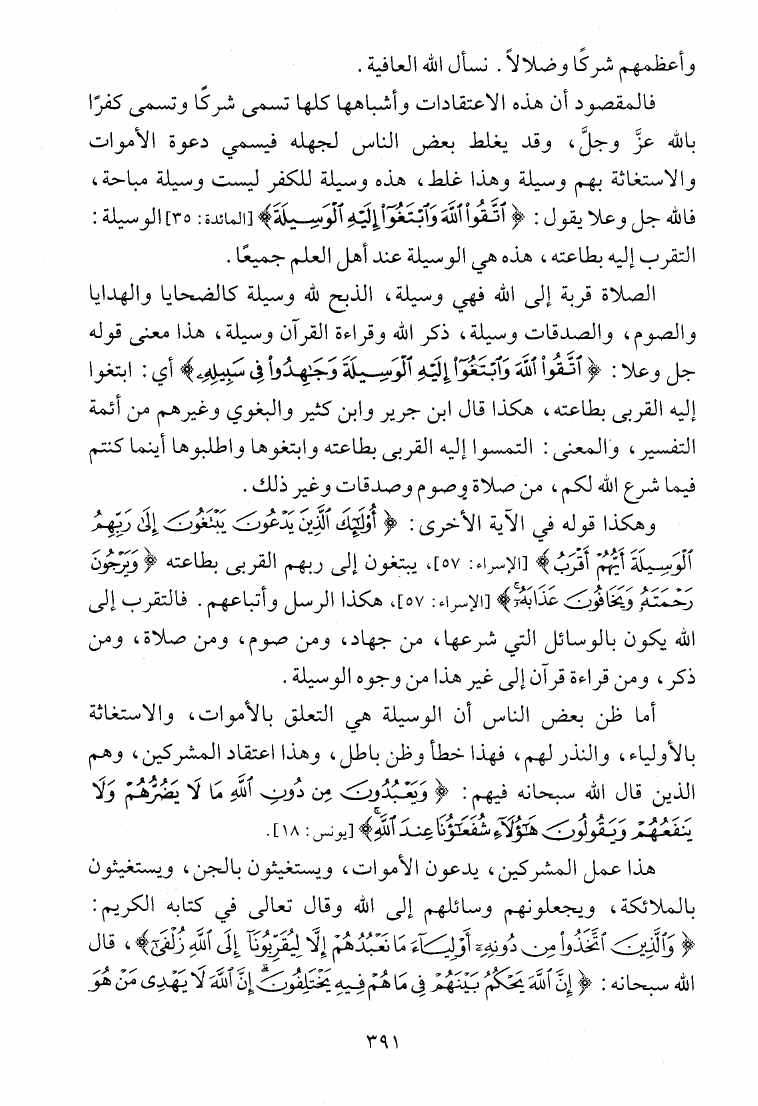 وأعظمهم شركًا وضلالاً. نسأل الله العافية.
فالمقصود أن هذه الاعتقادات وأشباهها كلها تسمى شركًا وتسمى كفرًا
بالله عزَّ وجلَّ، وقد يغلط بعض الناس لجهله فيسمي دعوة الأموات
والاستغاثة بهم وسيلة وهذا غلط، هذه وسيلة للكفر ليست وسيلة مباحة،
فالله جل وعلا يقول: ﴿ ٱتَّقُواْ ٱللَّهَ وَٱبۡتَغُوٓاْ إِلَيۡهِ ٱلۡوَسِيلَةَ﴾ [المائدة: ٣٥] الوسيلة:
التقرب إليه بطاعته، هذه هي الوسيلة عند أهل العلم جميعًا.
الصلاة قربة إلى الله فهي وسيلة، الذبح لله وسيلة كالضحايا والهدايا
والصوم، والصدقات وسيلة، ذكر الله وقراءة القرآن وسيلة، هذا معنى قوله
جل وعلا: ﴿ ٱتَّقُواْ ٱللَّهَ وَٱبۡتَغُوٓاْ إِلَيۡهِ ٱلۡوَسِيلَةَ وَجَٰهِدُواْ فِي سَبِيلِهِۦ﴾ أي: ابتغوا
إليه القربى بطاعته، هكذا قال ابن جرير وابن كثير والبغوي وغيرهم من أئمة
التفسير، والمعنى: التمسوا إليه القربى بطاعته وابتغوها واطلبوها أينما كنتم
فيما شرع الله لكم، من صلاة وصوم وصدقات وغير ذلك.
وهكذا قوله في الآية الأخرى: ﴿ أُوْلَٰٓئِكَ ٱلَّذِينَ يَدۡعُونَ يَبۡتَغُونَ إِلَىٰ رَبِّهِمُ
ٱلۡوَسِيلَةَ أَيُّهُمۡ أَقۡرَبُ﴾ [الإسراء: ٥٧]، يبتغون إلى ربهم القربى بطاعته ﴿ وَيَرۡجُونَ
رَحۡمَتَهُۥ وَيَخَافُونَ عَذَابَهُۥٓۚ﴾ [الإسراء: ٥٧]، هكذا الرسل وأتباعهم. فالتقرب إلى
الله يكون بالوسائل التي شرعها، من جهاد، ومن صوم، ومن صلاة، ومن
ذكر، ومن قراءة قرآن إلى غير هذا من وجوه الوسيلة.
أما ظن بعض الناس أن الوسيلة هي التعلق بالأموات، والاستغاثة
بالأولياء، والنذر لهم، فهذا خطأ وظن باطل، وهذا اعتقاد المشركين، وهم
الذين قال الله سبحانه فيهم: ﴿ وَيَعۡبُدُونَ مِن دُونِ ٱللَّهِ مَا لَا يَضُرُّهُمۡ وَلَا
يَنفَعُهُمۡ وَيَقُولُونَ هَٰٓؤُلَآءِ شُفَعَٰٓؤُنَا عِندَ ٱللَّهِۚ﴾ [يونس: ١٨].
هذا عمل المشركين، يدعون الأموات، ويستغيثون بالجن، ويستغيثون
بالملائكة، ويجعلونهم وسائلهم إلى الله وقال تعالى في كتابه الكريم:
﴿ وَٱلَّذِينَ ٱتَّخَذُواْ مِن دُونِهِۦٓ أَوۡلِيَآءَ مَا نَعۡبُدُهُمۡ إِلَّا لِيُقَرِّبُونَآ إِلَى ٱللَّهِ زُلۡفَىٰٓ﴾، قال
الله سبحانه: ﴿ إِنَّ ٱللَّهَ يَحۡكُمُ بَيۡنَهُمۡ فِي مَا هُمۡ فِيهِ يَخۡتَلِفُونَۗ إِنَّ ٱللَّهَ لَا يَهۡدِي مَنۡ هُوَ
٣٩١